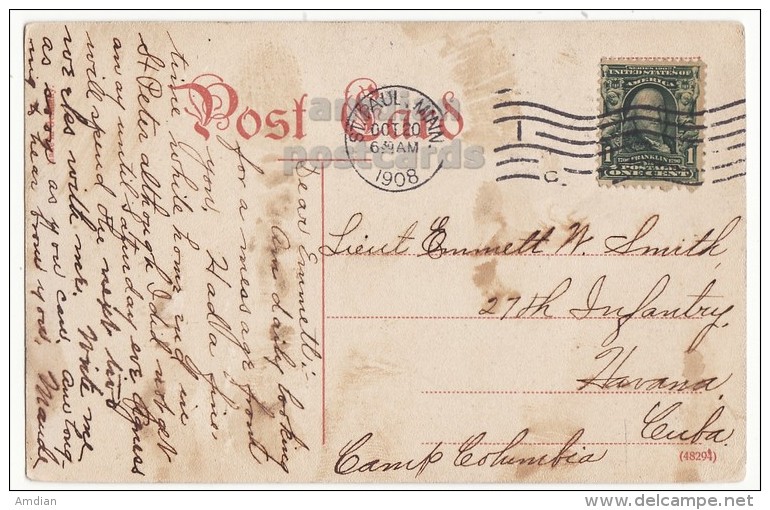 Post Card
american
postcards.
ST. PAUL, MINN.
OCT 20
6 30 AM
1908
C.
SERIES 1902
UNITED STATES OF
AMERICA
1 1706 FRANKLIN 1790 1
POSTAGE
ONE CENT
Dear Emmett:-
Am daily looking
for a message from
you. Had a fine
time while home and in
St Peter although I did not get
away until Saturday eve. Agness
will spend the next two
weeks with me. Write me
as soon as you can. Am long-
ing to hear from you. Maude
Lieut Emmett W. Smith,
27th Infantry.
Havana,
Cuba.
Camp Columbia
(48294)
Amdian
delcampe.net